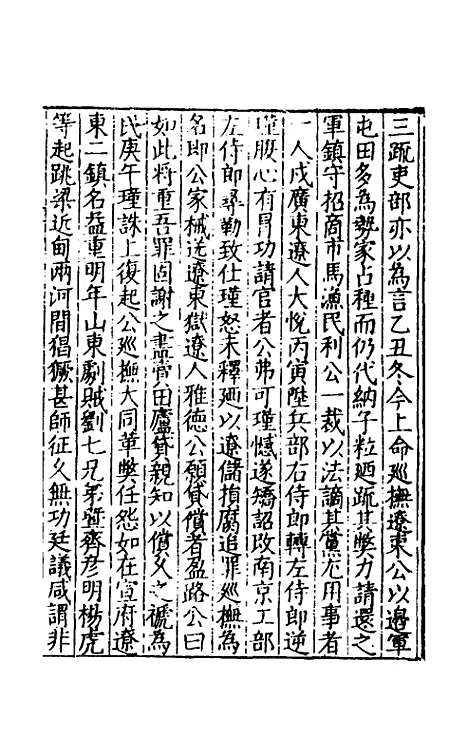 三疏吏部亦以為言乙丑冬今上命巡撫遼東公以邊軍
屯田多為勢家占種而仍代納子粒廼疏其弊力請還之
軍鎮守招商市馬漁民利公一裁以法謫其黨尤用事者
一人戍廣東遼人大悅丙寅陞兵部右侍郎轉左侍郎逆
瑾腹心有冒功請官者公弗可瑾憾遂矯詔改南京工部
左侍郎尋勒致仕瑾怒未釋廼以遼儲指腐追罪巡撫為
名即公家械送遼東獄遼人雅德公願貸償者盈路公曰
如此將重吾罪固謝之盡賣田廬貸親知以償久之褫為
民庚午瑾誅上復起公巡撫大同革弊任怨如在宣府遼
東二鎮名益重明年山東劇賊劉七兄弟暨齊彦明楊虎
等起跳梁近甸兩河間猖獗甚師征久無功廷議咸謂非